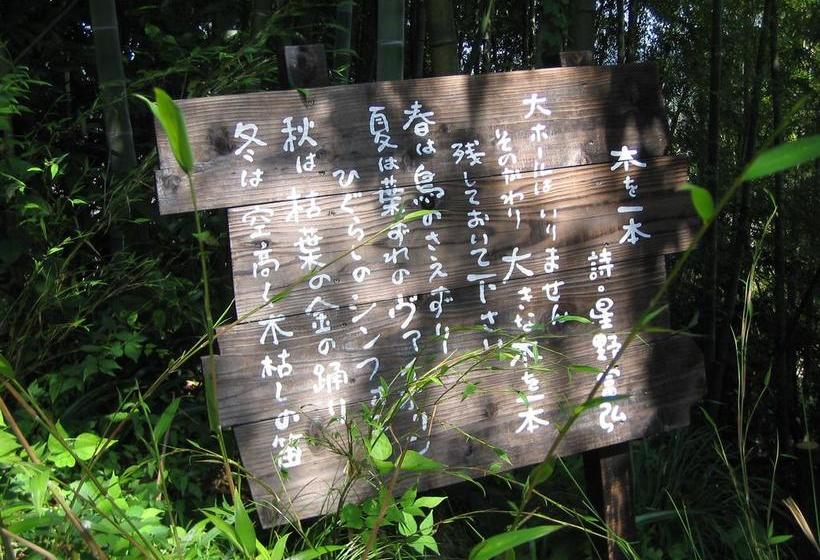 木を一本
詩・星野富弘
大ホールはいりません
そのかわり 大きな木を一本
残しておいて下さい
春は鳥のさえずり
夏は葉ずれのヴァイオリン
ひぐらしのシンフ
秋は枯葉の金の踊り
冬は空高く木枯しの笛